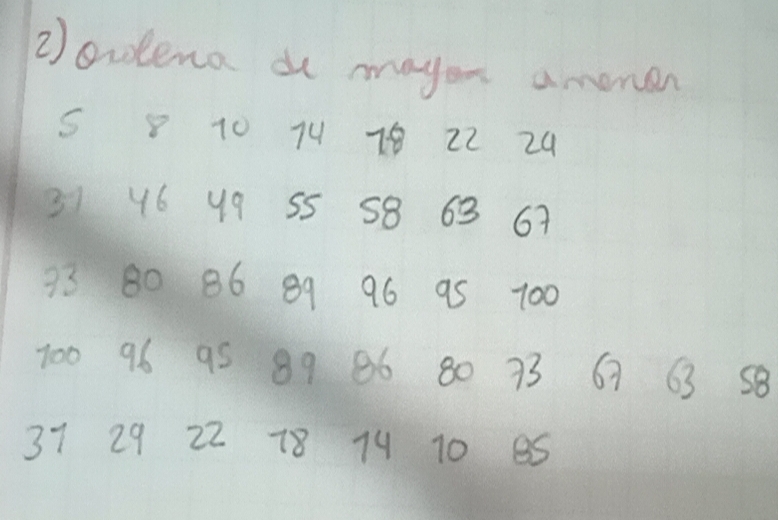 2) ordena de mayor a menor
5 8 10 14 18 22 24
31 46 49 55 58 63 67
73 80 86 89 96 95 100
100 96 95 89 86 80 73 67 63 58
31 29 22 18 14 10 85